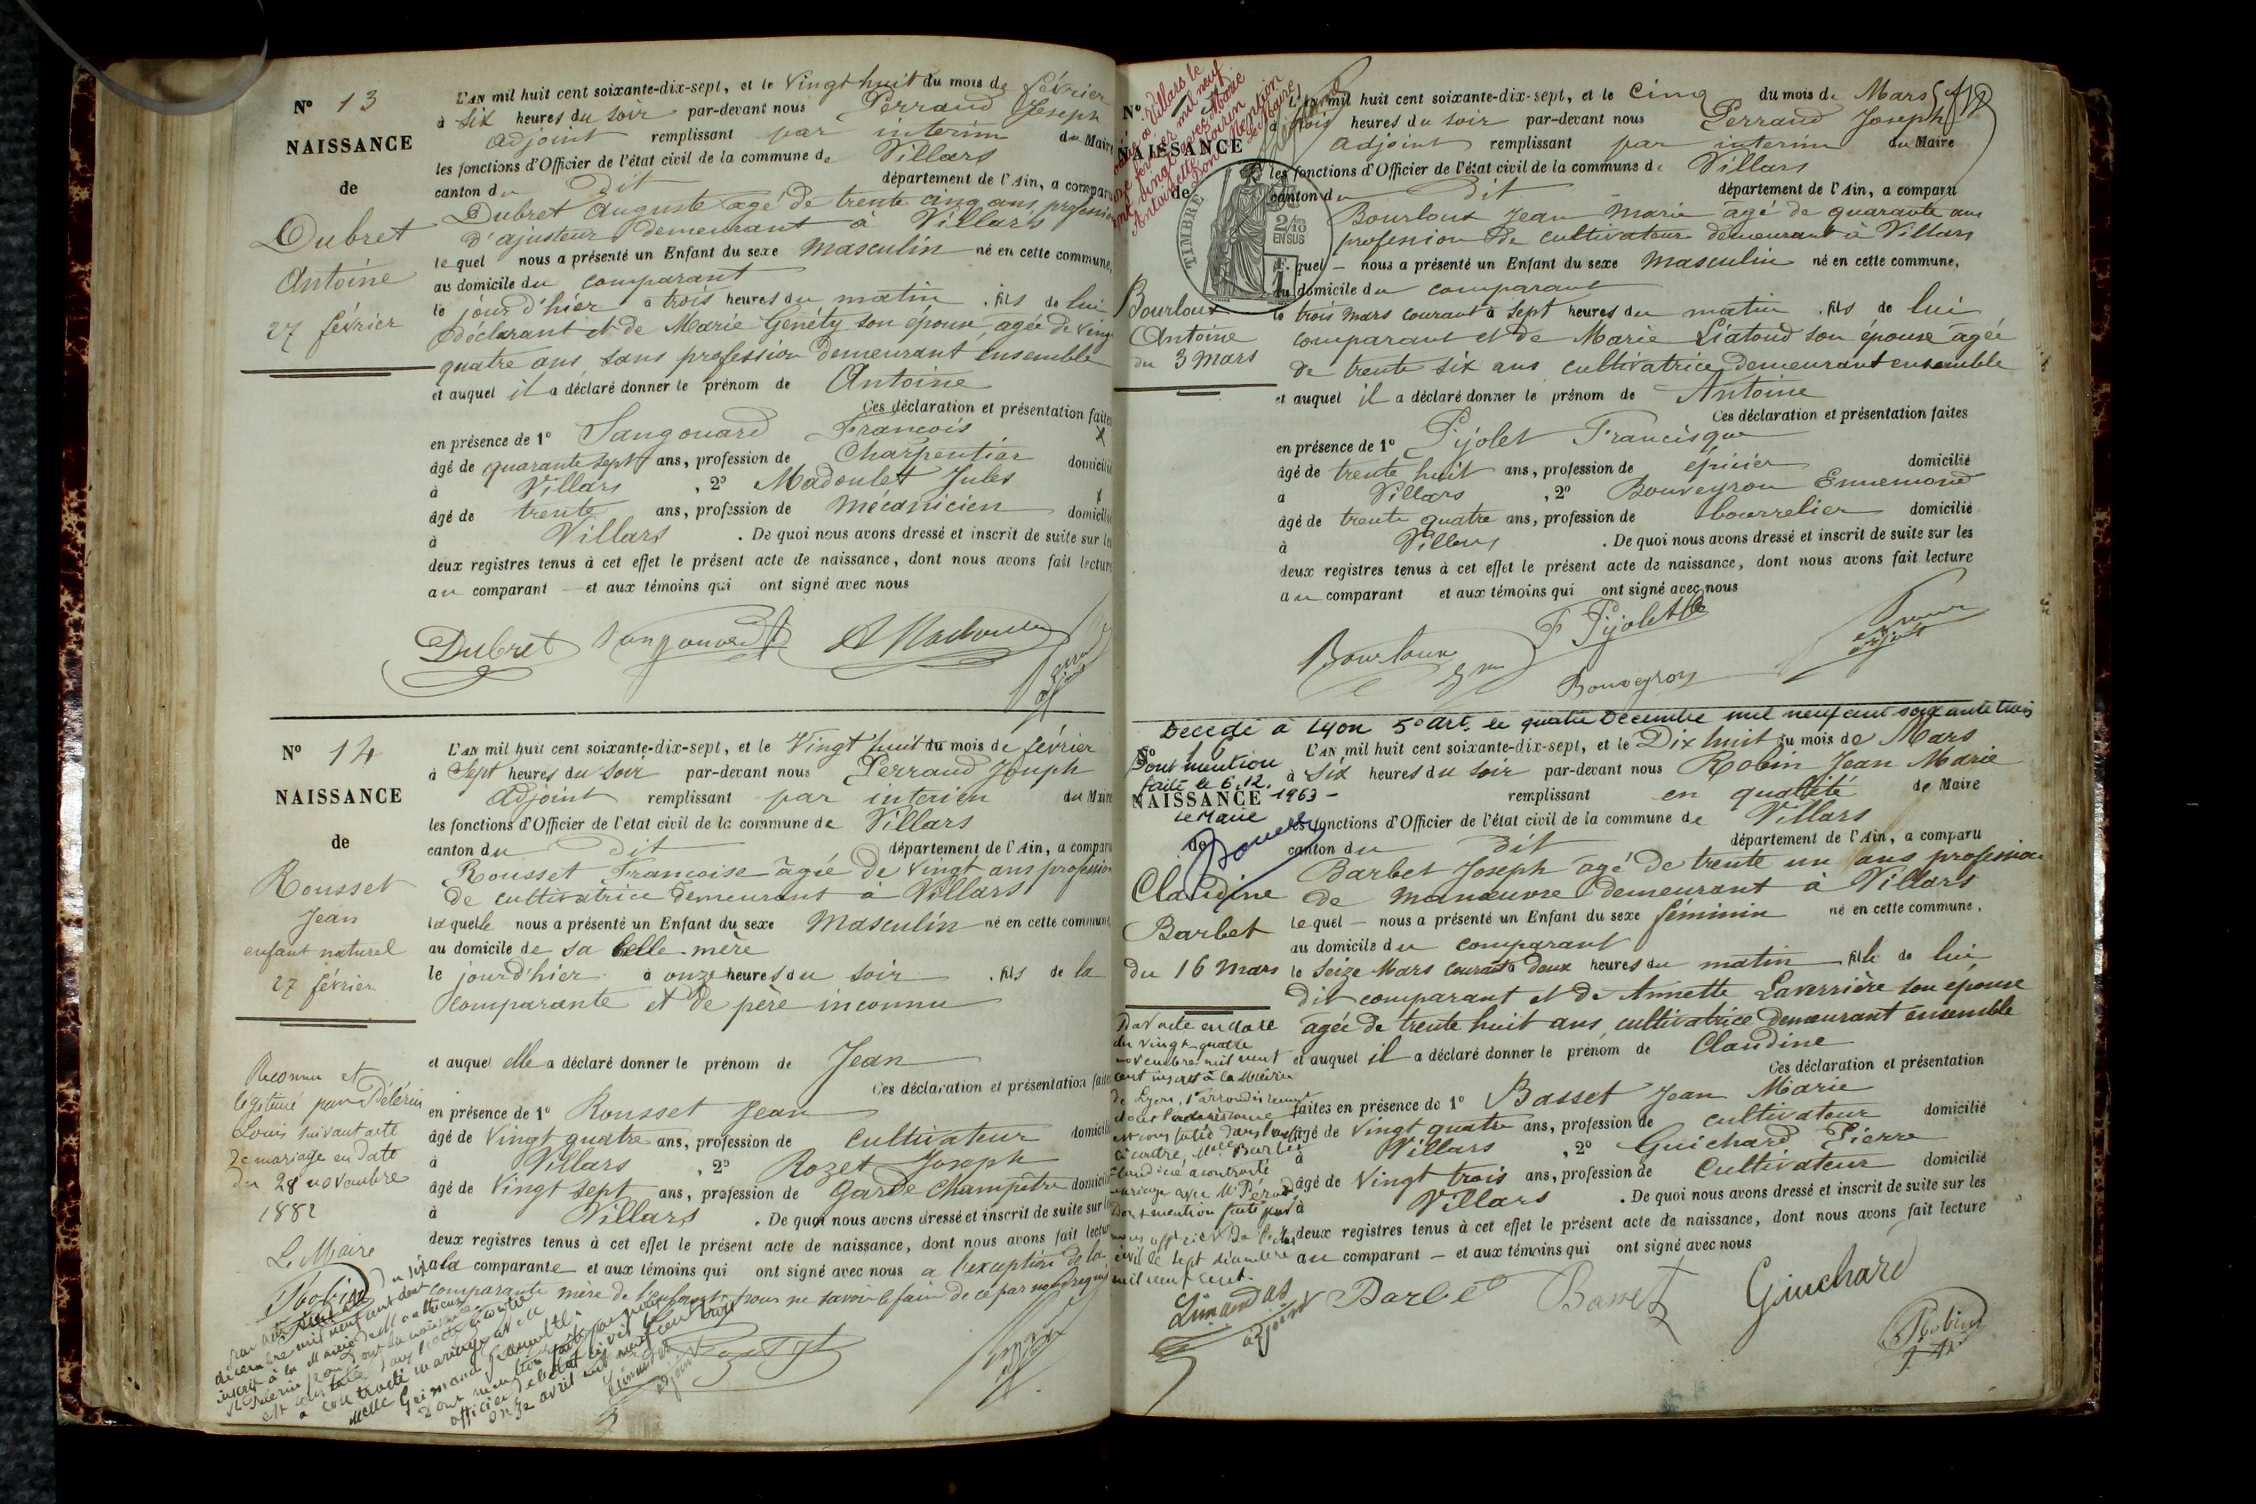 N° 13
NAISSANCE
de
Dubret
Antoine
27 février
L'AN mil huit cent soixante-dix-sept, et le Vingt huit du mois de février
à Six heures du soir par-devant nous Perraud Joseph
adjoint remplissant par interim du Maire
les fonctions d'Officier de l'état civil de la commune de Villars
canton du dit département de l'Ain, a comparu
Dubret Auguste agé de trente cinq ans, profession
d'ajusteur demeurant à Villars
le quel nous a présenté un Enfant du sexe Masculin né en cette commune,
au domicile du comparant
le jour d'hier à trois heures du matin, fils de lui
déclarant et de Marie Genéty son épouse, agée de vingt
quatre ans, sans profession demeurant ensemble
et auquel il a déclaré donner le prénom de Antoine
Ces déclaration et présentation faites
en présence de 1° Sangouard François
âgé de quarante sept ans, profession de Charpentier domicilié
à Villars, 2° Madoulet Jules
âgé de trente ans, profession de Mécanicien domicilié
à Villars. De quoi nous avons dressé et inscrit de suite sur les
deux registres tenus à cet effet le présent acte de naissance, dont nous avons fait lecture
au comparant et aux témoins qui ont signé avec nous
Dubret
N° 14
NAISSANCE
de
Rousset
Jean
enfant naturel
27 février
Reconnu et
légitimé par Pélérin
Louis suivant acte
de mariage en date
du 28 novembre
1882
Le Maire
Robin
L'AN mil huit cent soixante-dix-sept, et le Vingt huit du mois de février
à Sept heures du soir par-devant nous Perraud Joseph
Adjoint remplissant par interim du Maire
les fonctions d'Officier de l'état civil de la commune de Villars
canton du dit département de l'Ain, a comparu
Rousset Françoise âgée de vingt ans profession
de cultivatrice demeurant à Villars
laquelle nous a présenté un Enfant du sexe Masculin né en cette commune,
au domicile de sa belle-mère
le jour d'hier à onze heures du soir, fils de la
comparante et de père inconnu
et auquel elle a déclaré donner le prénom de Jean
Ces déclaration et présentation faites
en présence de 1° Rousset Jean
âgé de Vingt quatre ans, profession de Cultivateur domicilié
à Villars, 2° Rozet Joseph
âgé de Vingt sept ans, profession de Garde Champêtre domicilié
à Villars. De quoi nous avons dressé et inscrit de suite sur les
deux registres tenus à cet effet le présent acte de naissance, dont nous avons fait lecture
à la comparante et aux témoins qui ont signé avec nous a l'exception de la
comparante mère de l'enfant pour ne savoir le faire de ce par nous requis
N°
NAISSANCE
de
TIMBRE
2/10
EN SUS
Bourloux
Antoine
du 3 Mars
L'AN mil huit cent soixante-dix-sept, et le Cinq du mois de Mars
à trois heures du soir par-devant nous Perraud Joseph
adjoint remplissant par interim du Maire
les fonctions d'Officier de l'état civil de la commune de Villars
canton du dit département de l'Ain, a comparu
Bourloux Jean Marie agé de quarante ans
profession de cultivateur demeurant à Villars
le quel nous a présenté un Enfant du sexe Masculin né en cette commune,
au domicile du comparant
le trois Mars courant à Sept heures du matin, fils de lui
comparant et de Marie Liatoud son épouse agée
de trente six ans cultivatrice demeurant ensemble
et auquel il a déclaré donner le prénom de Antoine
Ces déclaration et présentation faites
en présence de 1° Pijolet Francisque
âgé de trente huit ans, profession de épicier domicilié
à Villars, 2° Bouveyron Ennemond
âgé de trente quatre ans, profession de bourrelier domicilié
à Villars. De quoi nous avons dressé et inscrit de suite sur les
deux registres tenus à cet effet le présent acte de naissance, dont nous avons fait lecture
au comparant et aux témoins qui ont signé avec nous
F Pijolet
Bourloux
Bouveyron
Décédé à Lyon 5e art. le quatre Décembre mil neuf cent soixante trois
N° 16
Dont mention
faite le 6.12.1963
Le Maire
NAISSANCE
de
Claudine
Barbet
du 16 Mars
L'AN mil huit cent soixante-dix-sept, et le Dix huit du mois de Mars
à Six heures du soir par-devant nous Robin Jean Marie
remplissant en qualité de Maire
les fonctions d'Officier de l'état civil de la commune de Villars
canton du dit département de l'Ain, a comparu
Barbet Joseph agé de trente un ans profession
de manœuvre demeurant à Villars
le quel nous a présenté un Enfant du sexe féminin né en cette commune,
au domicile du comparant
le Seize Mars courant à Deux heures du matin fille de lui
dit comparant et de Annette Laverrière son épouse
agée de trente huit ans, cultivatrice demeurant ensemble
et auquel il a déclaré donner le prénom de Claudine
Ces déclaration et présentation
faites en présence de 1° Basset Jean Marie
âgé de Vingt quatre ans, profession de cultivateur domicilié
à Villars, 2° Guichard Pierre
âgé de Vingt trois ans, profession de Cultivateur domicilié
à Villars. De quoi nous avons dressé et inscrit de suite sur les
deux registres tenus à cet effet le présent acte de naissance, dont nous avons fait lecture
au comparant et aux témoins qui ont signé avec nous
Par acte en date
du vingt quatre
novembre mil neuf
cent inscrit à la Mairie
Limandas
adjoint
Barbet
Basset
Guichard
Robin